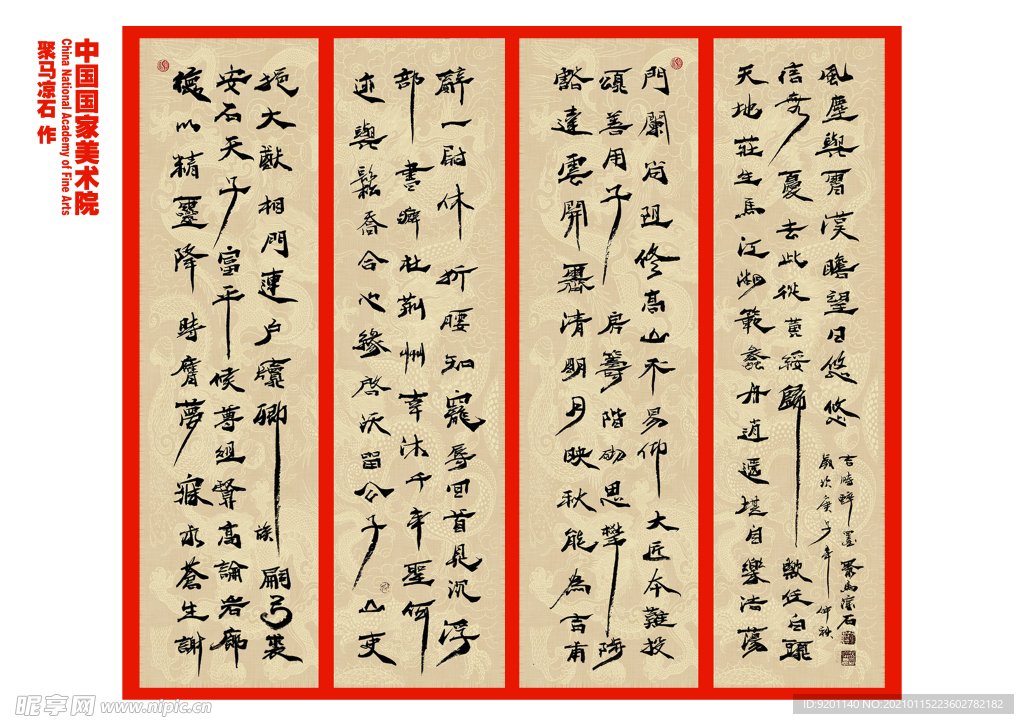 中国国家美术院
China National Academy of Fine Arts
聚马凉石 作
德以精靈降時膺夢寐求蒼生謝
安石天子富平候尊俎資高論岩廊
挹大猷相門連户牖卿族嗣弓裘
迹與鬆喬合心緣啓沃留公子山吏
部書癖杜荊州幸沐千年聖何
辭一尉休折腰知寵辱回首見沉浮
豁達雲開霽清明月映秋能為吉甫
頌善用子房籌階砌思攀陟
門闌尚阻修高山不易仰大匠本難投
天地莊生馬江湖範蠡舟逍遥堪自樂浩蕩
信無憂去此從黄綬歸歟任白頭
風塵與霄漢瞻望日悠悠
歲次庚子年仲秋
吉時醉墨聚馬涼石
昵享网 www.nipic.cn
ID:9201140 NO:20210115223602782182